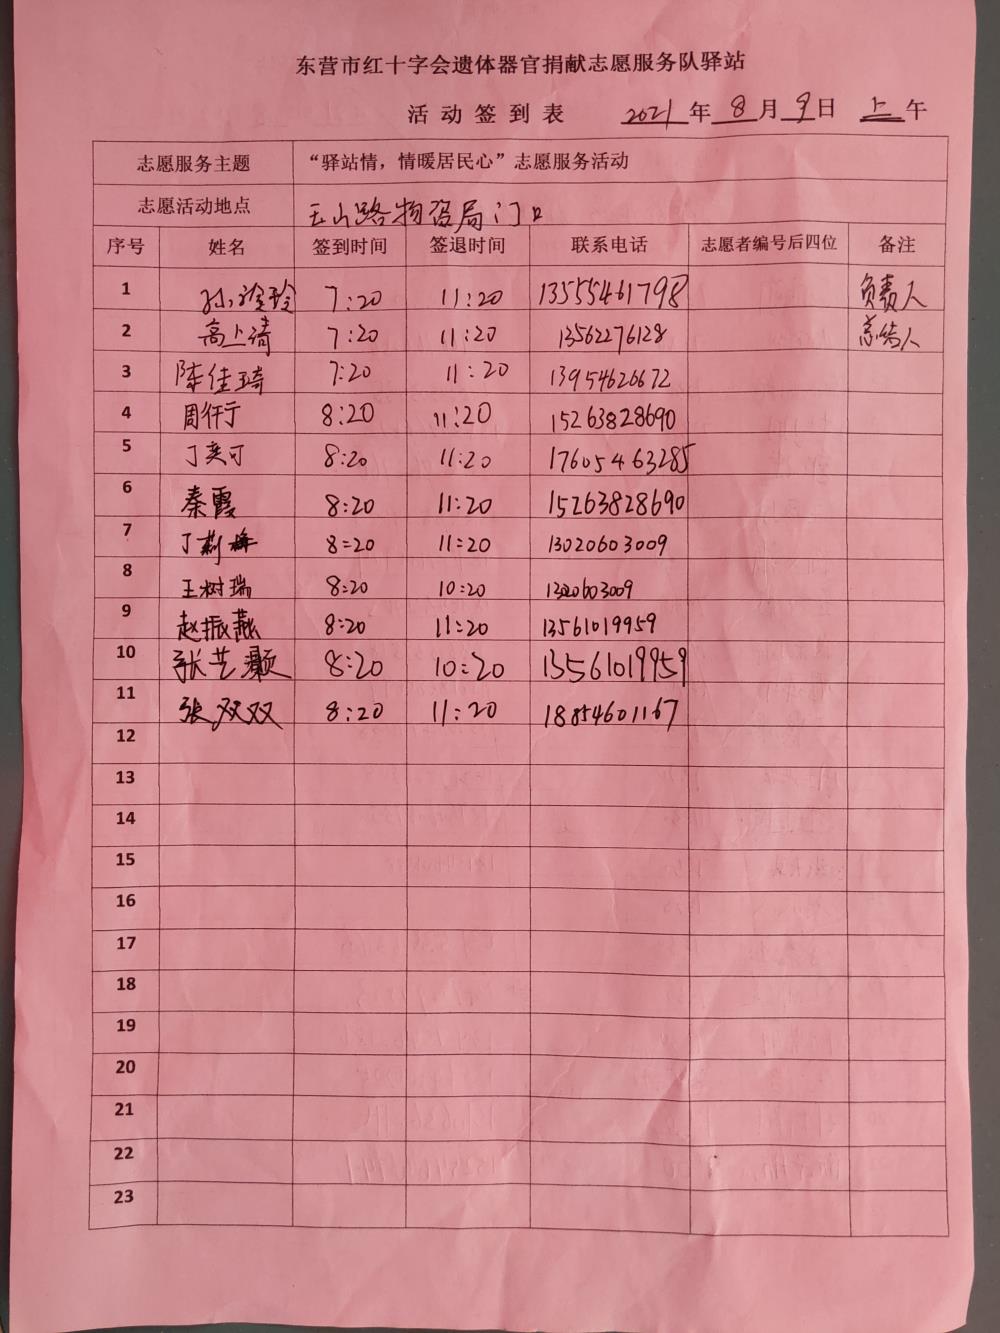 东营市红十字会遗体器官捐献志愿服务队驿站
活动签到表 2021年8月9日 上午
志愿服务主题 “驿站情，情暖居民心”志愿服务活动
志愿活动地点 玉山路物资局门口
序号 姓名 签到时间 签退时间 联系电话 志愿者编号后四位 备注
1 孙 玲 7:20 11:20 13555461798 负责人
2 高上清 7:20 11:20 13562276128 总结人
3 陈佳琦 7:20 11:20 13954626672
4 周仟亍 8:20 11:20 15263828690
5 丁奕可 8:20 11:20 17605463285
6 秦霞 8:20 11:20 15263828690
7 丁莉梅 8:20 11:20 13020603009
8 王树瑞 8:20 10:20 13020603009
9 赵振燕 8:20 11:20 13561019959
10 张艺灏 8:20 10:20 13561019959
11 张双双 8:20 11:20 18854601167
12
13
14
15
16
17
18
19
20
21
22
23